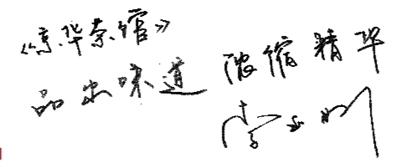 《京华茶馆》
品出味道 浓缩精华